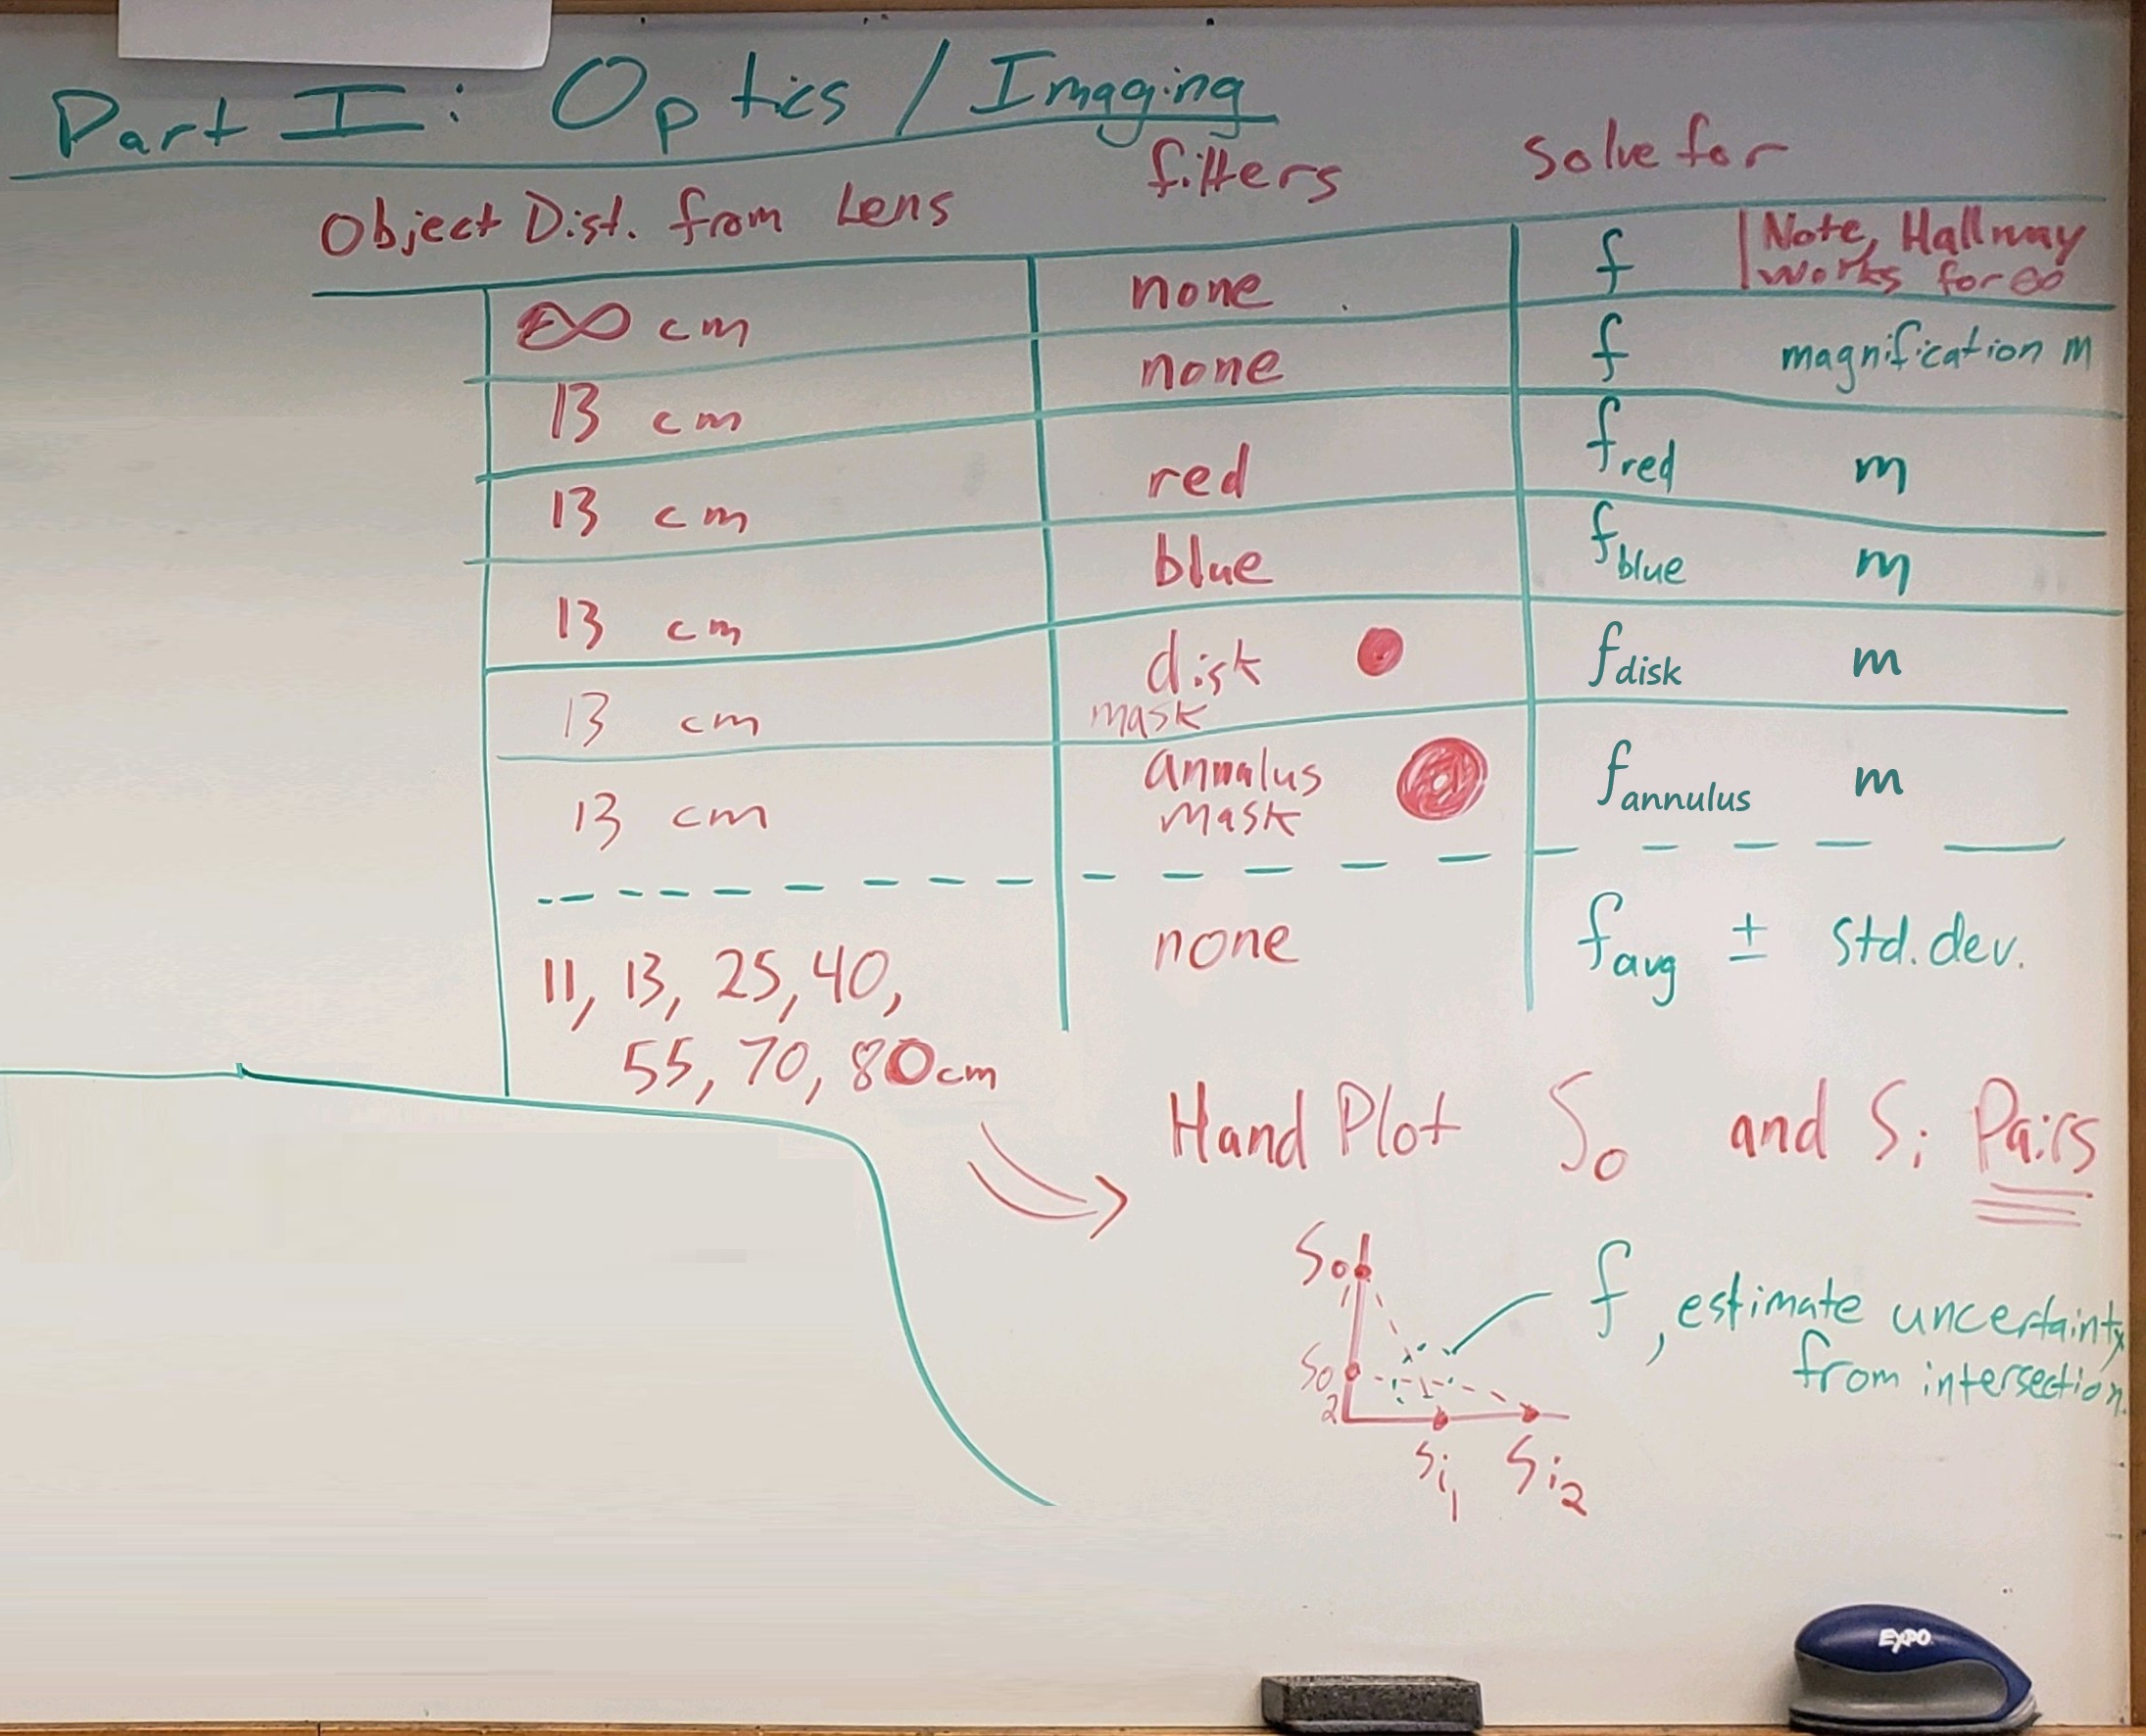 Part I: Optics / Imaging
Object Dist. from Lens filters solve for
∞ cm none f Note, Hallway
works for ∞
13 cm none f magnification m
13 cm red f red m
13 cm blue f blue m
13 cm disk f disk m
mask
13 cm annulus f annulus m
mask
11, 13, 25, 40, none f avg ± Std. dev.
55, 70, 80cm
Hand Plot So and Si Pairs
So1
f, estimate uncertainty
from intersection.
So2
Si1 Si2
EXPO